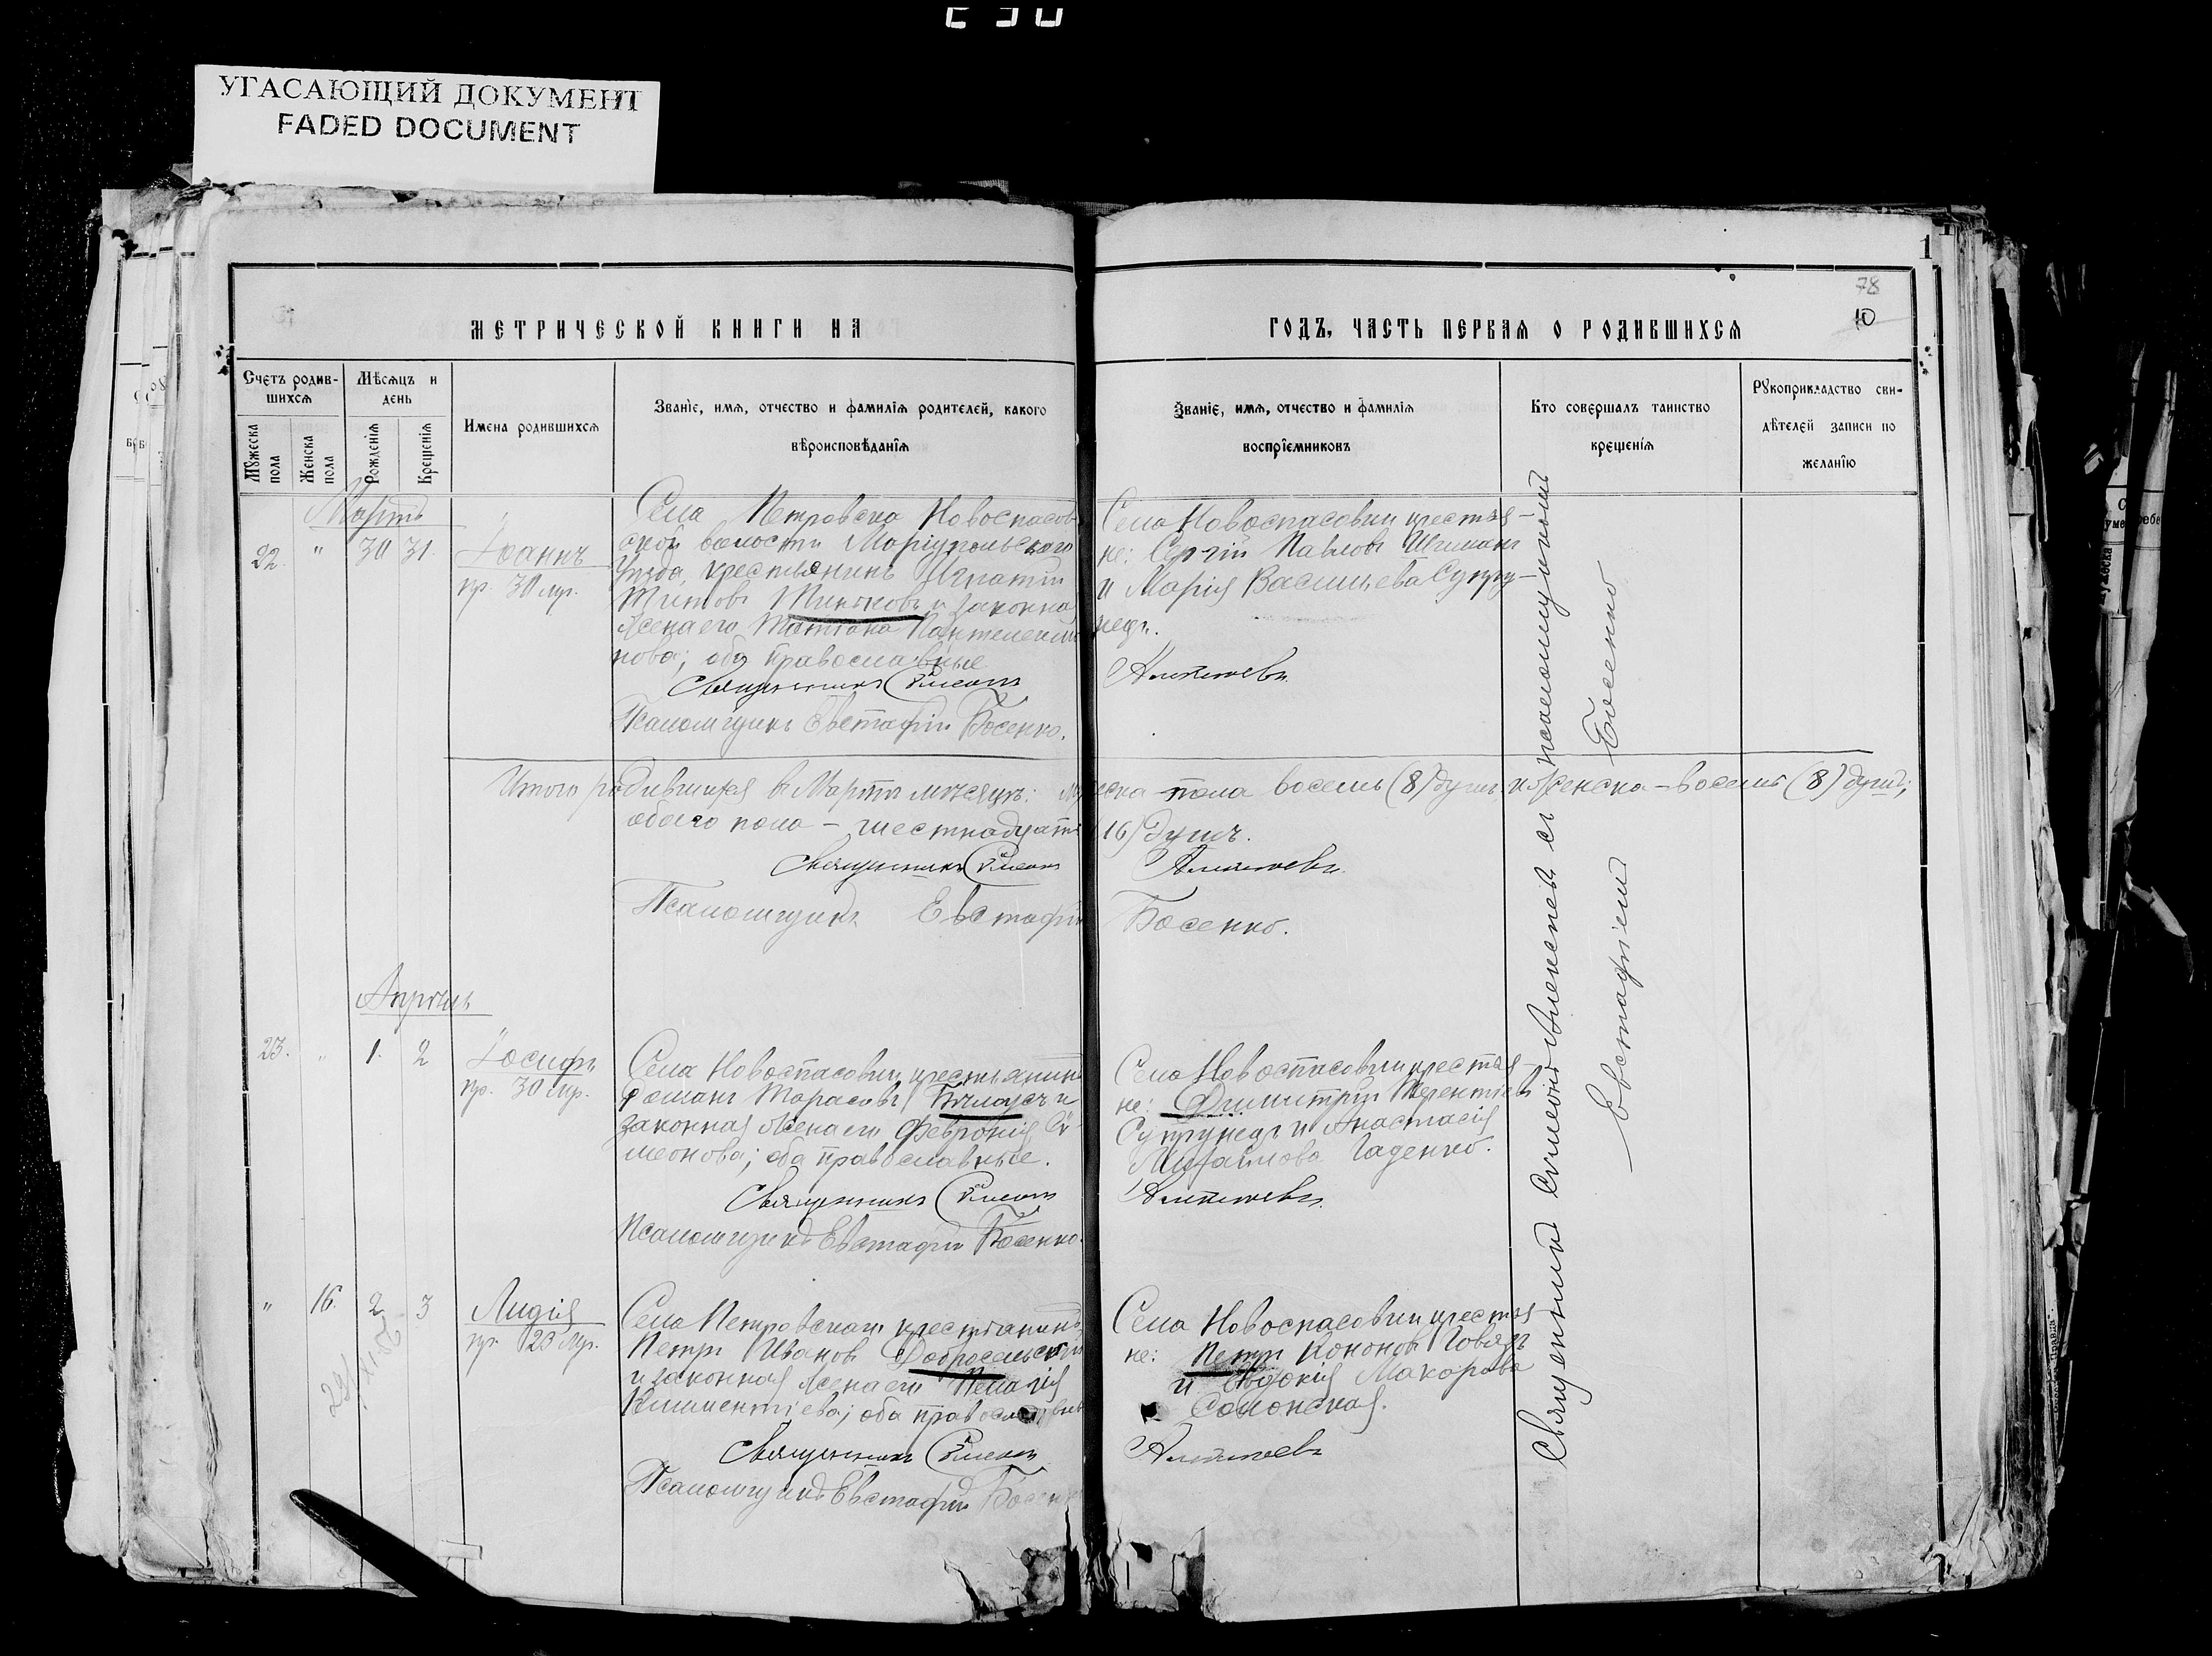 УГАСАЮЩИЙ ДОКУМЕНТ
FADED DOCUMENT
78
10
МЕТРИЧЕСКОЙ КНИГИ НА
ГОДЪ, ЧАСТЬ ПЕРВАЯ О РОДИВШИХСЯ
Счетъ родив-
шихся
Мужеска пола
Женска пола
Мѣсяцъ и
день
Рожденія
Крещенія
Имена родившихся
Званіе, имя, отчество и фамилія родителей, какого
вѣроисповѣданія
Званіе, имя, отчество и фамилія
воспріемниковъ
Кто совершалъ таинство
крещенія
Рукоприкладство сви-
дѣтелей записи по
желанію
Мартъ
22. " 30 31.
Іоаннъ
пр. 30 мр.
Села Петровска Новоспасов
ской волости Маріупольскаго
уѣзда, крестьянинъ Игнатій
Титовъ и законная
жена его Татіана Пантелеимо
нова; оба православные
Священникъ Симеонъ
Псаломщикъ Евстафій Босенко.
Села Новоспасовки крестья-
не: Сергій Павловъ
и Марія Васильева Супру-
нецъ.
Алексеевъ
Итого родившихся въ Мартѣ мѣсяцѣ: мужеска пола восемь (8) душъ, и женска - восемь (8) душъ;
обоего пола - шестнадцать (16) душъ.
Священникъ Симеонъ Алексеевъ
Псаломщикъ Евстафій Босенко.
Апрѣль
23. " 1. 2
Іосифъ
пр. 30 мр.
Села Новоспасовки крестьянинъ
Романъ Тарасовъ Бѣлоусъ и
законная жена его Февронія Си-
меонова; оба православные.
Священникъ Симеонъ
Псаломщикъ Евстафій Босенко.
Села Новоспасовки крестья
не: Димитрій Терентіевъ
Супрунецъ и Анастасія
Михайлова Гаденко.
Алексеевъ
" 16. 2 3
Лидія
пр. 23 мр.
Села Петровска крестьянинъ
Петръ Ивановъ Добросельскій
и законная жена его Пелагія
Климентіева; оба православные
Священникъ Симеонъ
Псаломщикъ Евстафій Босенко
Села Новоспасовки крестья
не: Петръ Кононовъ
и Евдокія Макарова
Алексеевъ
Священникъ Симеонъ Алексеевъ съ псаломщикомъ
Евстафіемъ Босенко